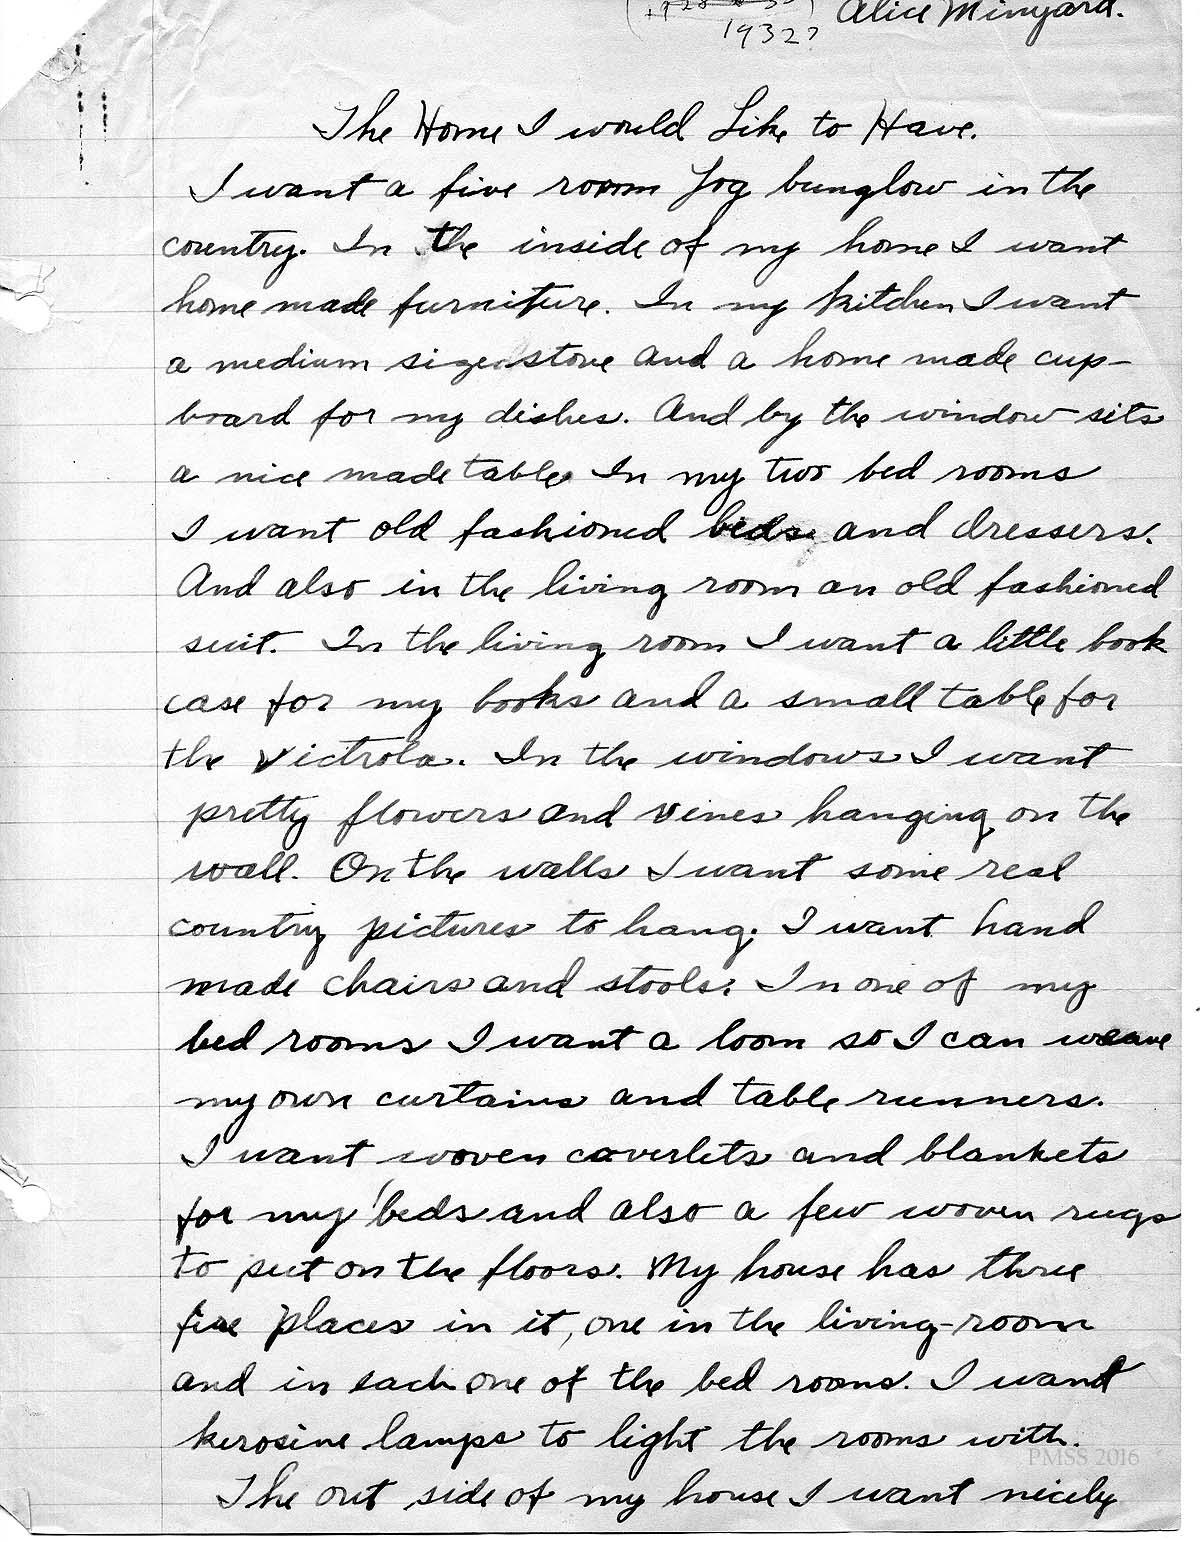 Alice Minyard.
1932?
The Home I would Like to Have.
I want a five room log bunglow in the
country. In the inside of my home I want
home made furniture. In my kitchen I want
a medium size stove and a home made cup-
board for my dishes. And by the window sits
a nice made table. In my two bed rooms
I want old fashioned beds and dressers.
And also in the living room an old fashioned
suit. In the living room I want a little book
case for my books and a small table for
the Victrola. In the windows I want
pretty flowers and vines hanging on the
wall. On the walls I want some real
country pictures to hang. I want hand
made chairs and stools. In one of my
bed rooms I want a loom so I can weave
my own curtains and table runners.
I want woven coverlets and blankets
for my beds and also a few woven rugs
to put on the floors. My house has three
fire places in it, one in the living-room
and in each one of the bed rooms. I want
kerosine lamps to light the rooms with.
PMSS 2016
The out side of my house I want nicely